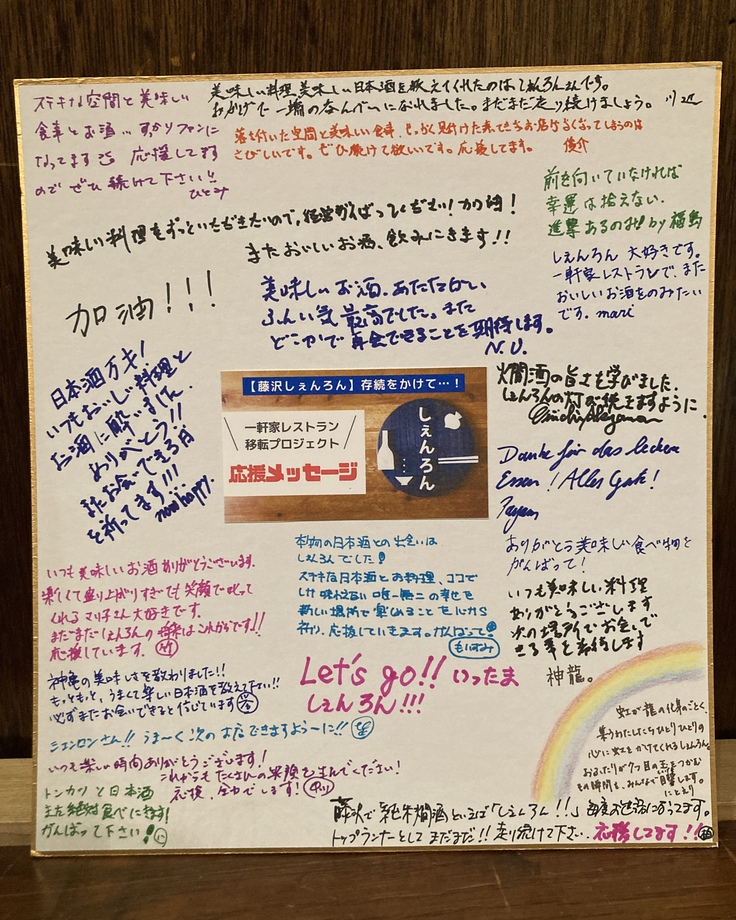 ステキな空間と美味しい
食事とお酒…すかりファンに
なってます 応援してます
ので ぜひ 続けて下さい!!
ひとみ
美味しい料理、美味しい日本酒を教えてくれたのはしぇんろんさんです。
おかげで一端ののんべいになれました。まだまだ走り続けましょう。 川辺
落ち付いた空間と美味しい食事、せっかく見付けた素てきなお店がなくなってしまうのは
さびしいです。ぜひ続けて欲いです。応援してます。 俊介
前を向いていなければ
幸運は拾えない。
進撃あるのみ! by 福島
美味しい料理をずっといただきたいので、経営がんばってください! 加油!
またおいしいお酒、飲みにきます!!
しぇんろん 大好きです。
一軒家レストランで、また
おいしいお酒をのみたい
です。mari
加油!!!
美味しいお酒、あたたかい
ふんい気 最高でした。また
どこかで再会できることを期待します。
N.U.
日本酒万才!
いつもおいしい料理と
お酒に酔いました。
ありがとう!!
またお会いできる日
を祈ってます!!!
【藤沢しぇんろん】存続をかけて…!
一軒家レストラン
移転プロジェクト
応援メッセージ
しぇんろん
燗酒の旨さを学びました。
しぇんろんの灯が続きますように。
Danke für das leckere
Essen! Alles Gute!
ありがとう美味しい食べ物を
がんばって!
いつも美味しい料理
ありがとうございます
次の場所でお会いで
きる事を期待します
神龍。
いつも美味しいお酒ありがとうございます。
楽しくて盛り上がりすぎても笑顔で叱って
くれるまり子さん大好きです。
まだまだしぇんろんの将来はこれからです!!
応援しています。
本物の日本酒との出会いは
しぇんろんでした!
ステキな日本酒とお料理、ココで
しか味わえない唯一無二の幸せを
新しい場所で楽しめることを心から
祈り、応援していきます。がんばって!
神亀の美味しさを教わりました!!
もっともっと、うまくて楽しい日本酒を教えて下さい!!
必ずまたお会いできると信じています
Let's go!! いったま
しぇんろん!!!
シェンロンさん!! うま〜く次のお店できますよ〜に!!
いつも楽しい時間ありがとうございます!
これからもたくさんの笑顔を生んでください!
応援、全力でします!
トンカツと日本酒
また絶対食べに来ます!
がんばって下さい!
虹が龍の化身のごとく、
集うわたしたちひとりひとりの
心に虹をかけてくれるしぇんろん。
おふたりが7つ目の玉をつかむ
その瞬間を、みんなで目撃します。
にとえり
藤沢で純米燗酒といえば「しぇんろん!!」毎度お世話になってます。
トップランナーとしてまだまだ!!走り続けて下さい。応援してます!!